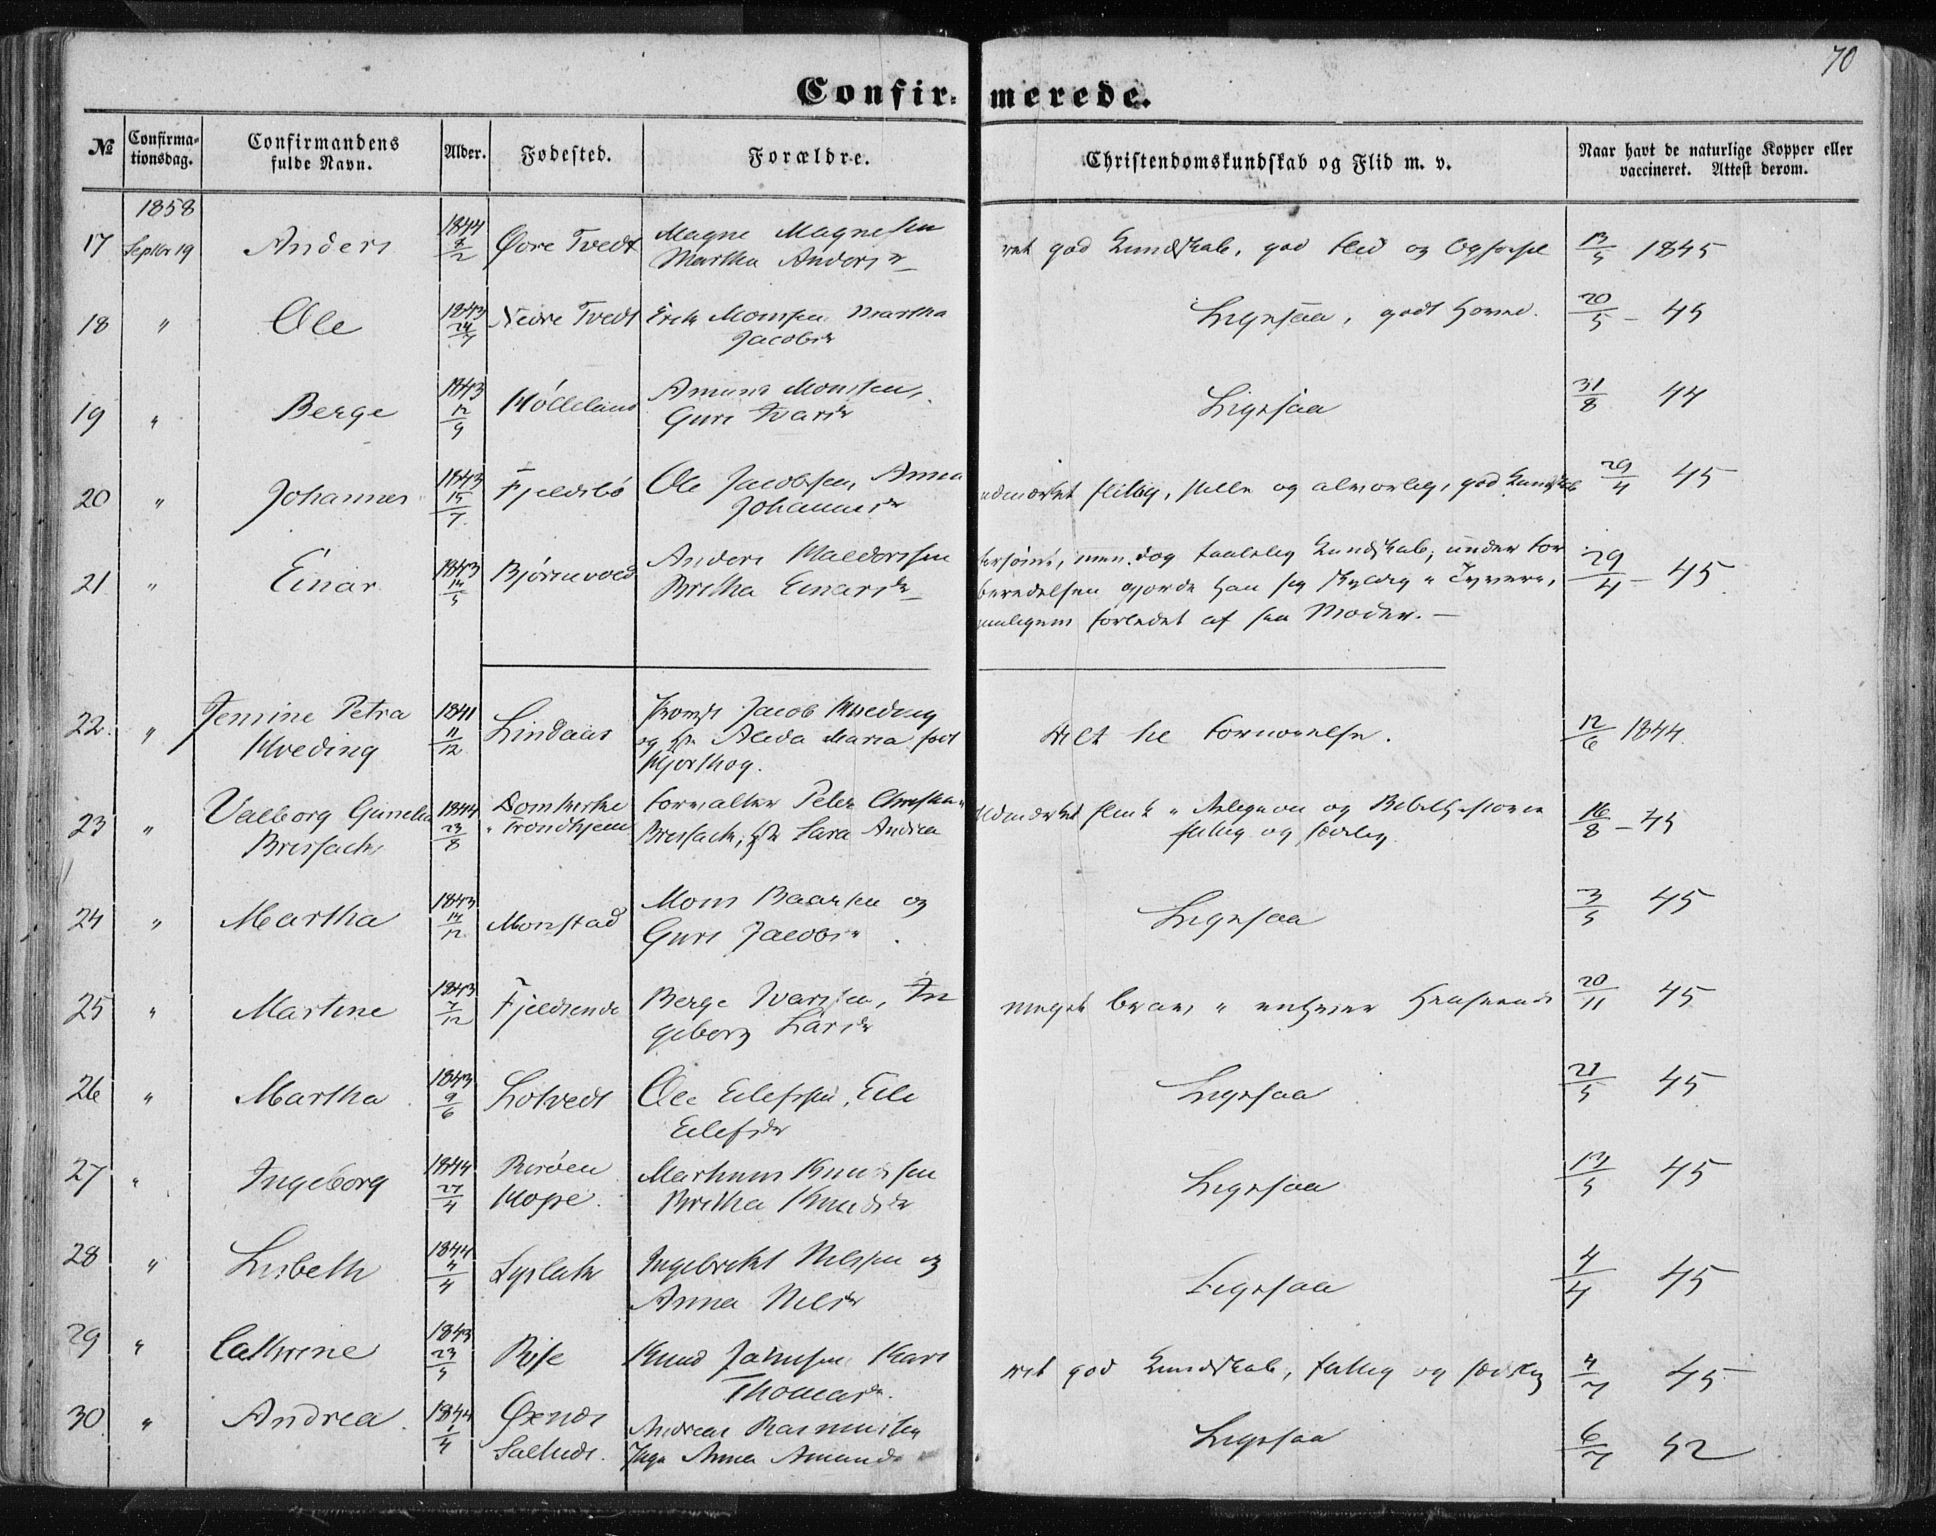 70
Confir= merede.
№ Confirma=tionsdag. Confirmandens fulde Navn. Alder. Fødested. Forældre. Christendomskundskab og Flid m. v. Naar havt de naturlige Kopper eller vaccineret. Attest derom.
1858
17 Septbr 19 Anders 1844 8/2 Øvre Tvedt Magne Magnesen Martha Andersdr ret god Kundskab, god Flid og Opførsel 13/5 1845
18 " Ole 1843 24/7 Nedre Tvedt Erik Monsen Martha Jacobsdr Ligesaa, godt 20/5 - 45
19 " Berge 1843 12/9 Amund Monsen, Guri Ivarsdr Ligesaa 31/8 44
20 " Johannes 1843 15/7 Fjeldsbø Ole Jacobsen, Anna Johannesdr udmærket flittig, stille og alvorlig, god Kundskab 29/4 45
21 " Einar 1843 14/5 Bjørnevold Anders Haldorsen Britha Einarsdr forsømt, men dog taalelig Kundskab, under For
beredelsen gjorde han sig skyldig i Tyveri,
forledet af sin Moder. — 29/4 - 45
22 " Jensine Petra Kveding 1841 11/12 Lindaas Provst Jacob Kveding og Alida Maria født Hjorthøg. Alt til Fornøielse. 12/6 1844
23 " Valborg Gunelia Bressach 1844 23/8 Domkirke i Trondhjem Forvalter Peter Christian Bressach, Sara Andrea Udmærket flink i Religion og Bibelhistorie flittig og sædelig 16/8 - 45
24 " Martha 1843 14/12 Monstad Mons Baarsen og Guri Jacobsdr Ligesaa 3/5 45
25 " Martine 1843 7/12 Fjeldsende Berge Ivarsen, In
geborg Larsdr meget brav, i enhver Henseende 20/11 45
26 " Martha 1843 9/6 Lotvedt Ole Eilefsen, Eli Eilefsdr Ligesaa 21/5 45
27 " Ingeborg 1844 27/4 Risøen Hope. Markus Knudsen Britha Knudsdr Ligesaa 13/5 45
28 " Lisbeth 1844 4/4 Syslak Ingebrikt Nilsen og Anna Nilsdr Ligesaa 4/4 45
29 " Cathrine 1843 23/5 Rise Knud Johnsen Kari Thomasdr ret god Kundskab, flittig og sædelig 4/7 45
30 " Andrea 1844 1/4 Øxnes Andreas Rasmussen Inga Anna Amunds Ligesaa 6/7 52